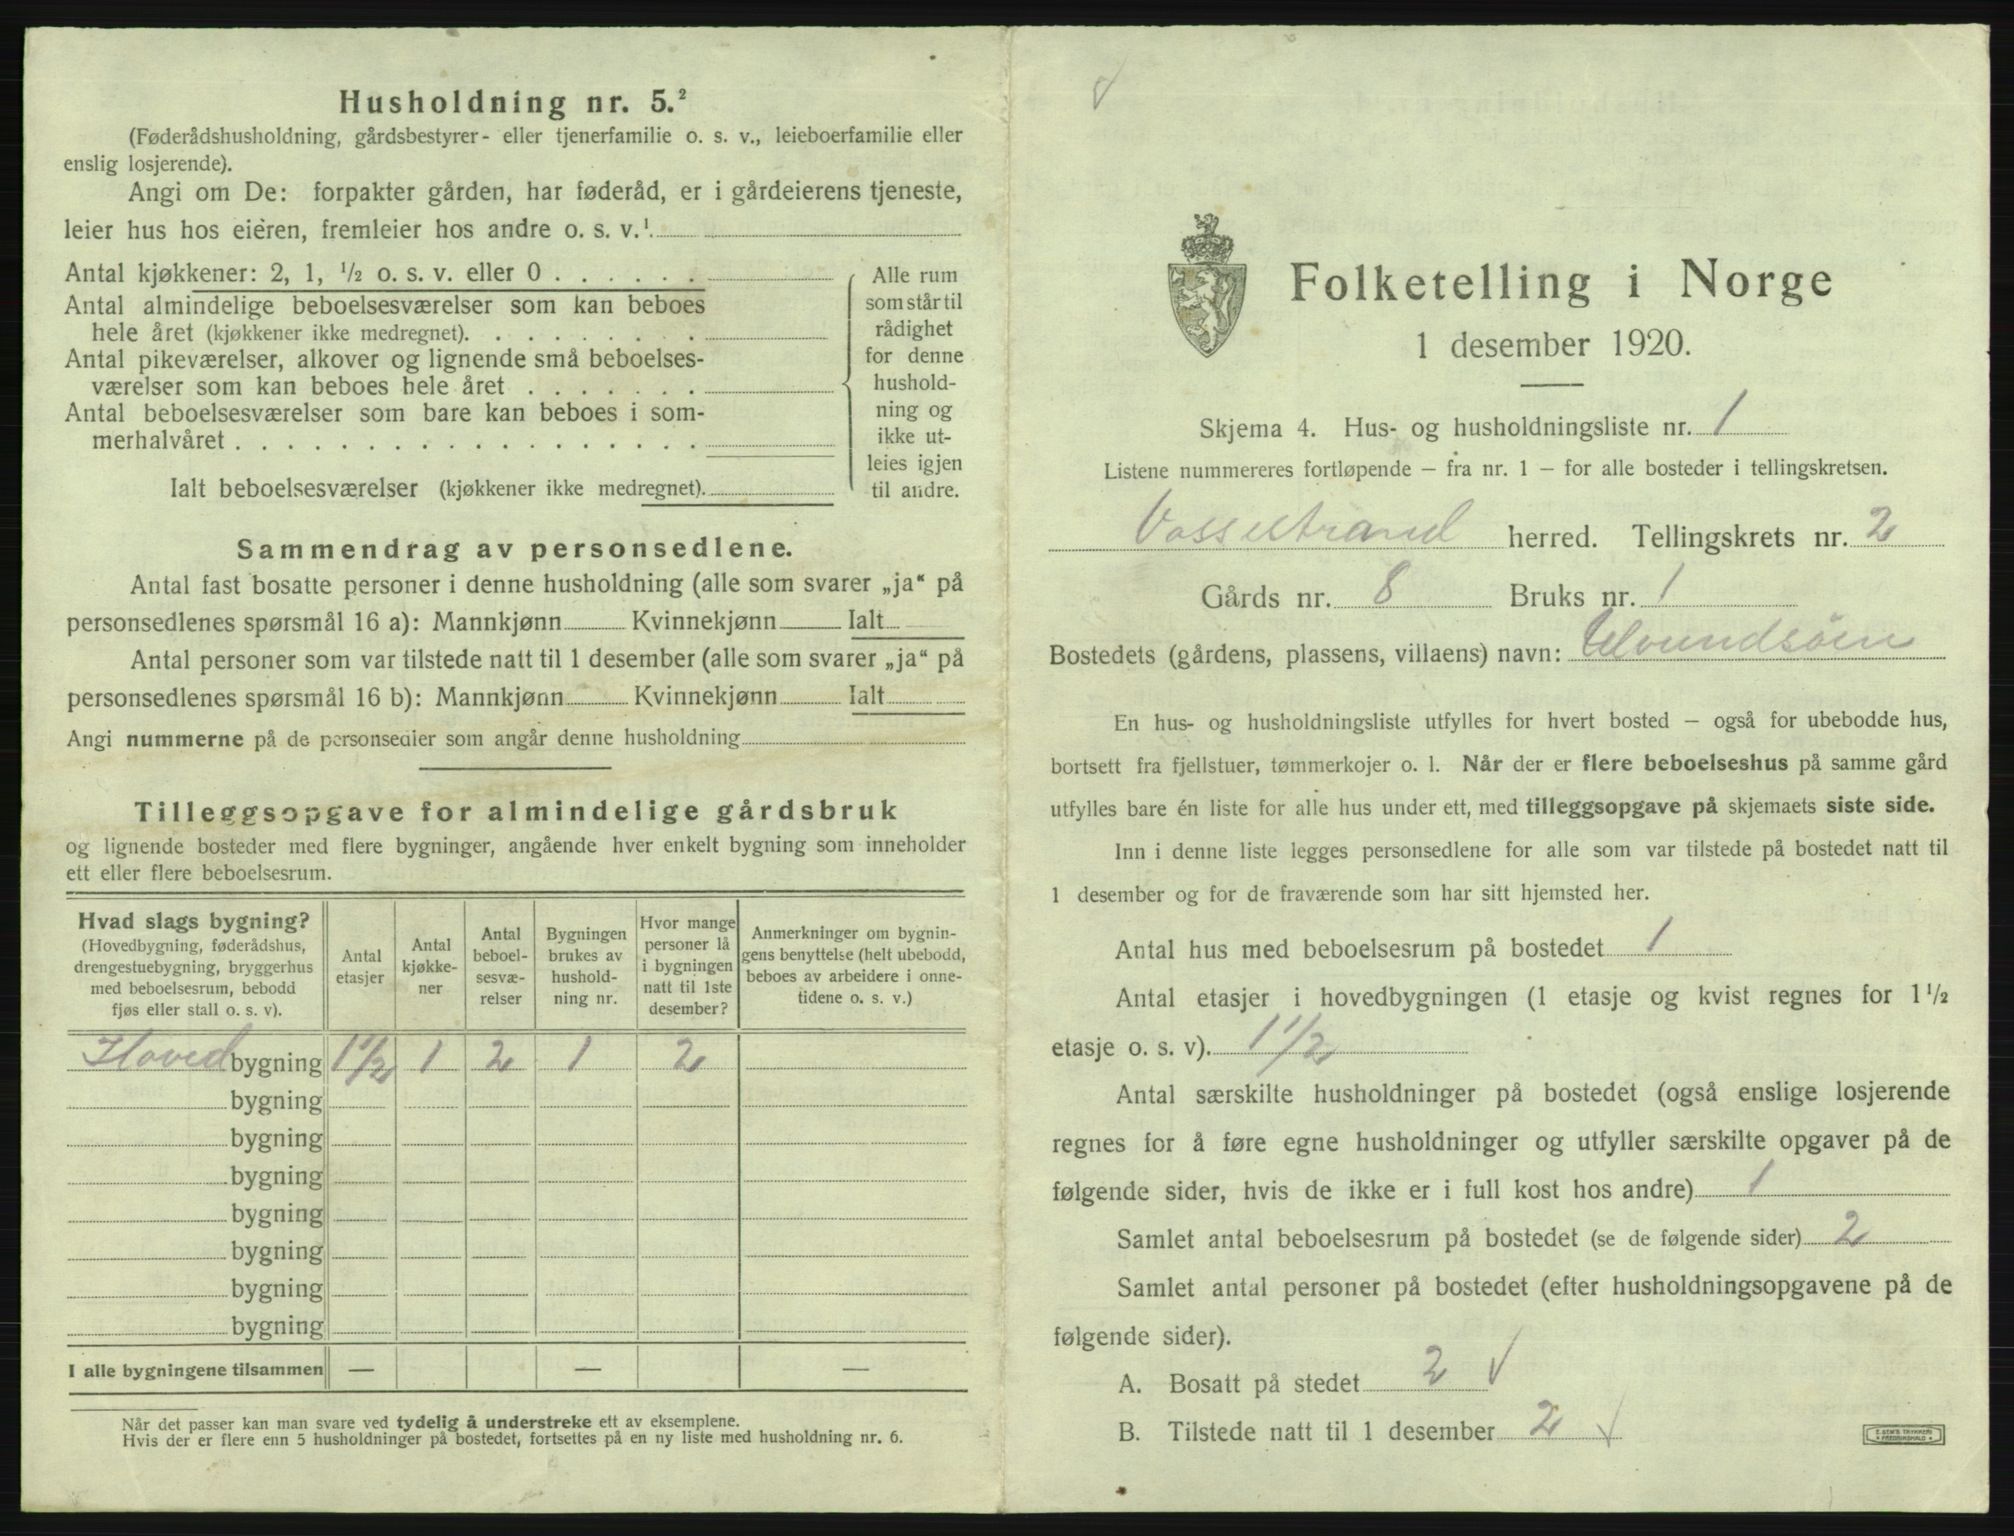 Husholdning nr. 5.²
(Føderådshusholdning, gårdsbestyrer- eller tjenerfamilie o. s. v., leieboerfamilie eller
enslig losjerende).
Angi om De: forpakter gården, har føderåd, er i gårdeierens tjeneste,
leier hus hos eieren, fremleier hos andre o. s. v.¹
Antal kjøkkener: 2, 1, ½ o. s. v. eller 0 . . . . . .
Antal almindelige beboelsesværelser som kan beboes
hele året (kjøkkener ikke medregnet). . . . . . . . .
Antal pikeværelser, alkover og lignende små beboelses-
værelser som kan beboes hele året . . . . . . .
Antal beboelsesværelser som bare kan beboes i som-
merhalvåret . . . . . . . . . . . . . . . . . .
Ialt beboelsesværelser (kjøkkener ikke medregnet).
Alle rum
som står til
rådighet
for denne
hushold-
ning og
ikke ut-
leies igjen
til andre.
Sammendrag av personsedlene.
Antal fast bosatte personer i denne husholdning (alle som svarer „ja“ på
personsedlenes spørsmål 16 a): Mannkjønn Kvinnekjønn Ialt
Antal personer som var tilstede natt til 1 desember (alle som svarer „ja“ på
personsedlenes spørsmål 16 b): Mannkjønn Kvinnekjønn Ialt
Angi nummerne på de personsedler som angår denne husholdning
Tilleggsopgave for almindelige gårdsbruk
og lignende bosteder med flere bygninger, angående hver enkelt bygning som inneholder
ett eller flere beboelsesrum.
Hvad slags bygning?
(Hovedbygning, føderådshus,
drengestuebygning, bryggerhus
med beboelsesrum, bebodd
fjøs eller stall o. s. v).
Antal
etasjer
Antal
kjøkke-
ner
Antal
beboel-
sesvæ-
relser
Bygningen
brukes av
hushold-
ning nr.
Hvor mange
personer lå
i bygningen
natt til 1ste
desember?
Anmerkninger om bygnin-
gens benyttelse (helt ubebodd,
beboes av arbeidere i onne-
tidene o. s. v.)
Hoved bygning 1½ 1 2 1 2
bygning
bygning
bygning
bygning
bygning
bygning
bygning
I alle bygningene tilsammen — — —
Når det passer kan man svare ved tydelig å understreke ett av eksemplene.
Hvis der er flere enn 5 husholdninger på bostedet, fortsettes på en ny liste med husholdning nr. 6.
Folketelling i Norge
1 desember 1920.
Skjema 4. Hus- og husholdningsliste nr. 1
Listene nummereres fortløpende – fra nr. 1 – for alle bosteder i tellingskretsen.
Vossestrand herred. Tellingskrets nr. 2
Gårds nr. 8 Bruks nr. 1
Bostedets (gårdens, plassens, villaens) navn:
En hus- og husholdningsliste utfylles for hvert bosted – også for ubebodde hus,
bortsett fra fjellstuer, tømmerkojer o. l. Når der er flere beboelseshus på samme gård
utfylles bare én liste for alle hus under ett, med tilleggsopgave på skjemaets siste side.
Inn i denne liste legges personsedlene for alle som var tilstede på bostedet natt til
1 desember og for de fraværende som har sitt hjemsted her.
Antal hus med beboelsesrum på bostedet 1
Antal etasjer i hovedbygningen (1 etasje og kvist regnes for 1½
etasje o. s. v). 1½
Antal særskilte husholdninger på bostedet (også enslige losjerende
regnes for å føre egne husholdninger og utfyller særskilte opgaver på de
følgende sider, hvis de ikke er i full kost hos andre) 1
Samlet antal beboelsesrum på bostedet (se de følgende sider) 2
Samlet antal personer på bostedet (efter husholdningsopgavene på de
følgende sider).
A. Bosatt på stedet 2
B. Tilstede natt til 1 desember 2